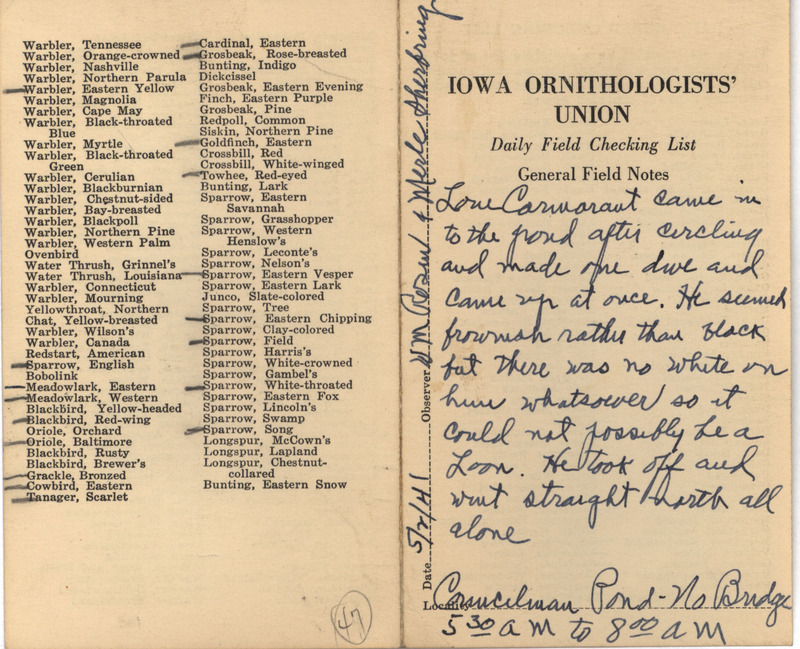 Warbler, Tennessee
Warbler, Orange-crowned
Warbler, Nashville
Warbler, Northern Parula
Warbler, Eastern Yellow
Warbler, Magnolia
Warbler, Cape May
Warbler, Black-throated
Blue
Warbler, Myrtle
Warbler, Black-throated
Green
Warbler, Cerulian
Warbler, Blackburnian
Warbler, Chestnut-sided
Warbler, Bay-breasted
Warbler, Blackpoll
Warbler, Northern Pine
Warbler, Western Palm
Ovenbird
Water Thrush, Grinnel's
Water Thrush, Louisiana
Warbler, Connecticut
Warbler, Mourning
Yellowthroat, Northern
Chat, Yellow-breasted
Warbler, Wilson's
Warbler, Canada
Redstart, American
Sparrow, English
Bobolink
Meadowlark, Eastern
Meadowlark, Western
Blackbird, Yellow-headed
Blackbird, Red-wing
Oriole, Orchard
Oriole, Baltimore
Blackbird, Rusty
Blackbird, Brewer's
Grackle, Bronzed
Cowbird, Eastern
Tanager, Scarlet
Cardinal, Eastern
Grosbeak, Rose-breasted
Bunting, Indigo
Dickcissel
Grosbeak, Eastern Evening
Finch, Eastern Purple
Grosbeak, Pine
Redpoll, Common
Siskin, Northern Pine
Goldfinch, Eastern
Crossbill, Red
Crossbill, White-winged
Towhee, Red-eyed
Bunting, Lark
Sparrow, Eastern
Savannah
Sparrow, Grasshopper
Sparrow, Western
Henslow's
Sparrow, Leconte's
Sparrow, Nelson's
Sparrow, Eastern Vesper
Sparrow, Eastern Lark
Junco, Slate-colored
Sparrow, Tree
Sparrow, Eastern Chipping
Sparrow, Clay-colored
Sparrow, Field
Sparrow, Harris's
Sparrow, White-crowned
Sparrow, Gambel's
Sparrow, White-throated
Sparrow, Eastern Fox
Sparrow, Lincoln's
Sparrow, Swamp
Sparrow, Song
Longspur, McCown's
Longspur, Lapland
Longspur, Chestnut-
collared
Bunting, Eastern Snow
47
IOWA ORNITHOLOGISTS'
UNION
Daily Field Checking List
General Field Notes
Lone Cormorant came in
to the pond after circling
and made one dive and
came up at once. He seemed
rather than black
but there was no white on
him whatsoever so it
could not possibly be a
Loon. He took off and
went straight north all
alone
Date 5/2/41 Observer Wm Rosene & Merle
Locality Councilman Pond - No Bridge
5 30 AM to 8 00 AM